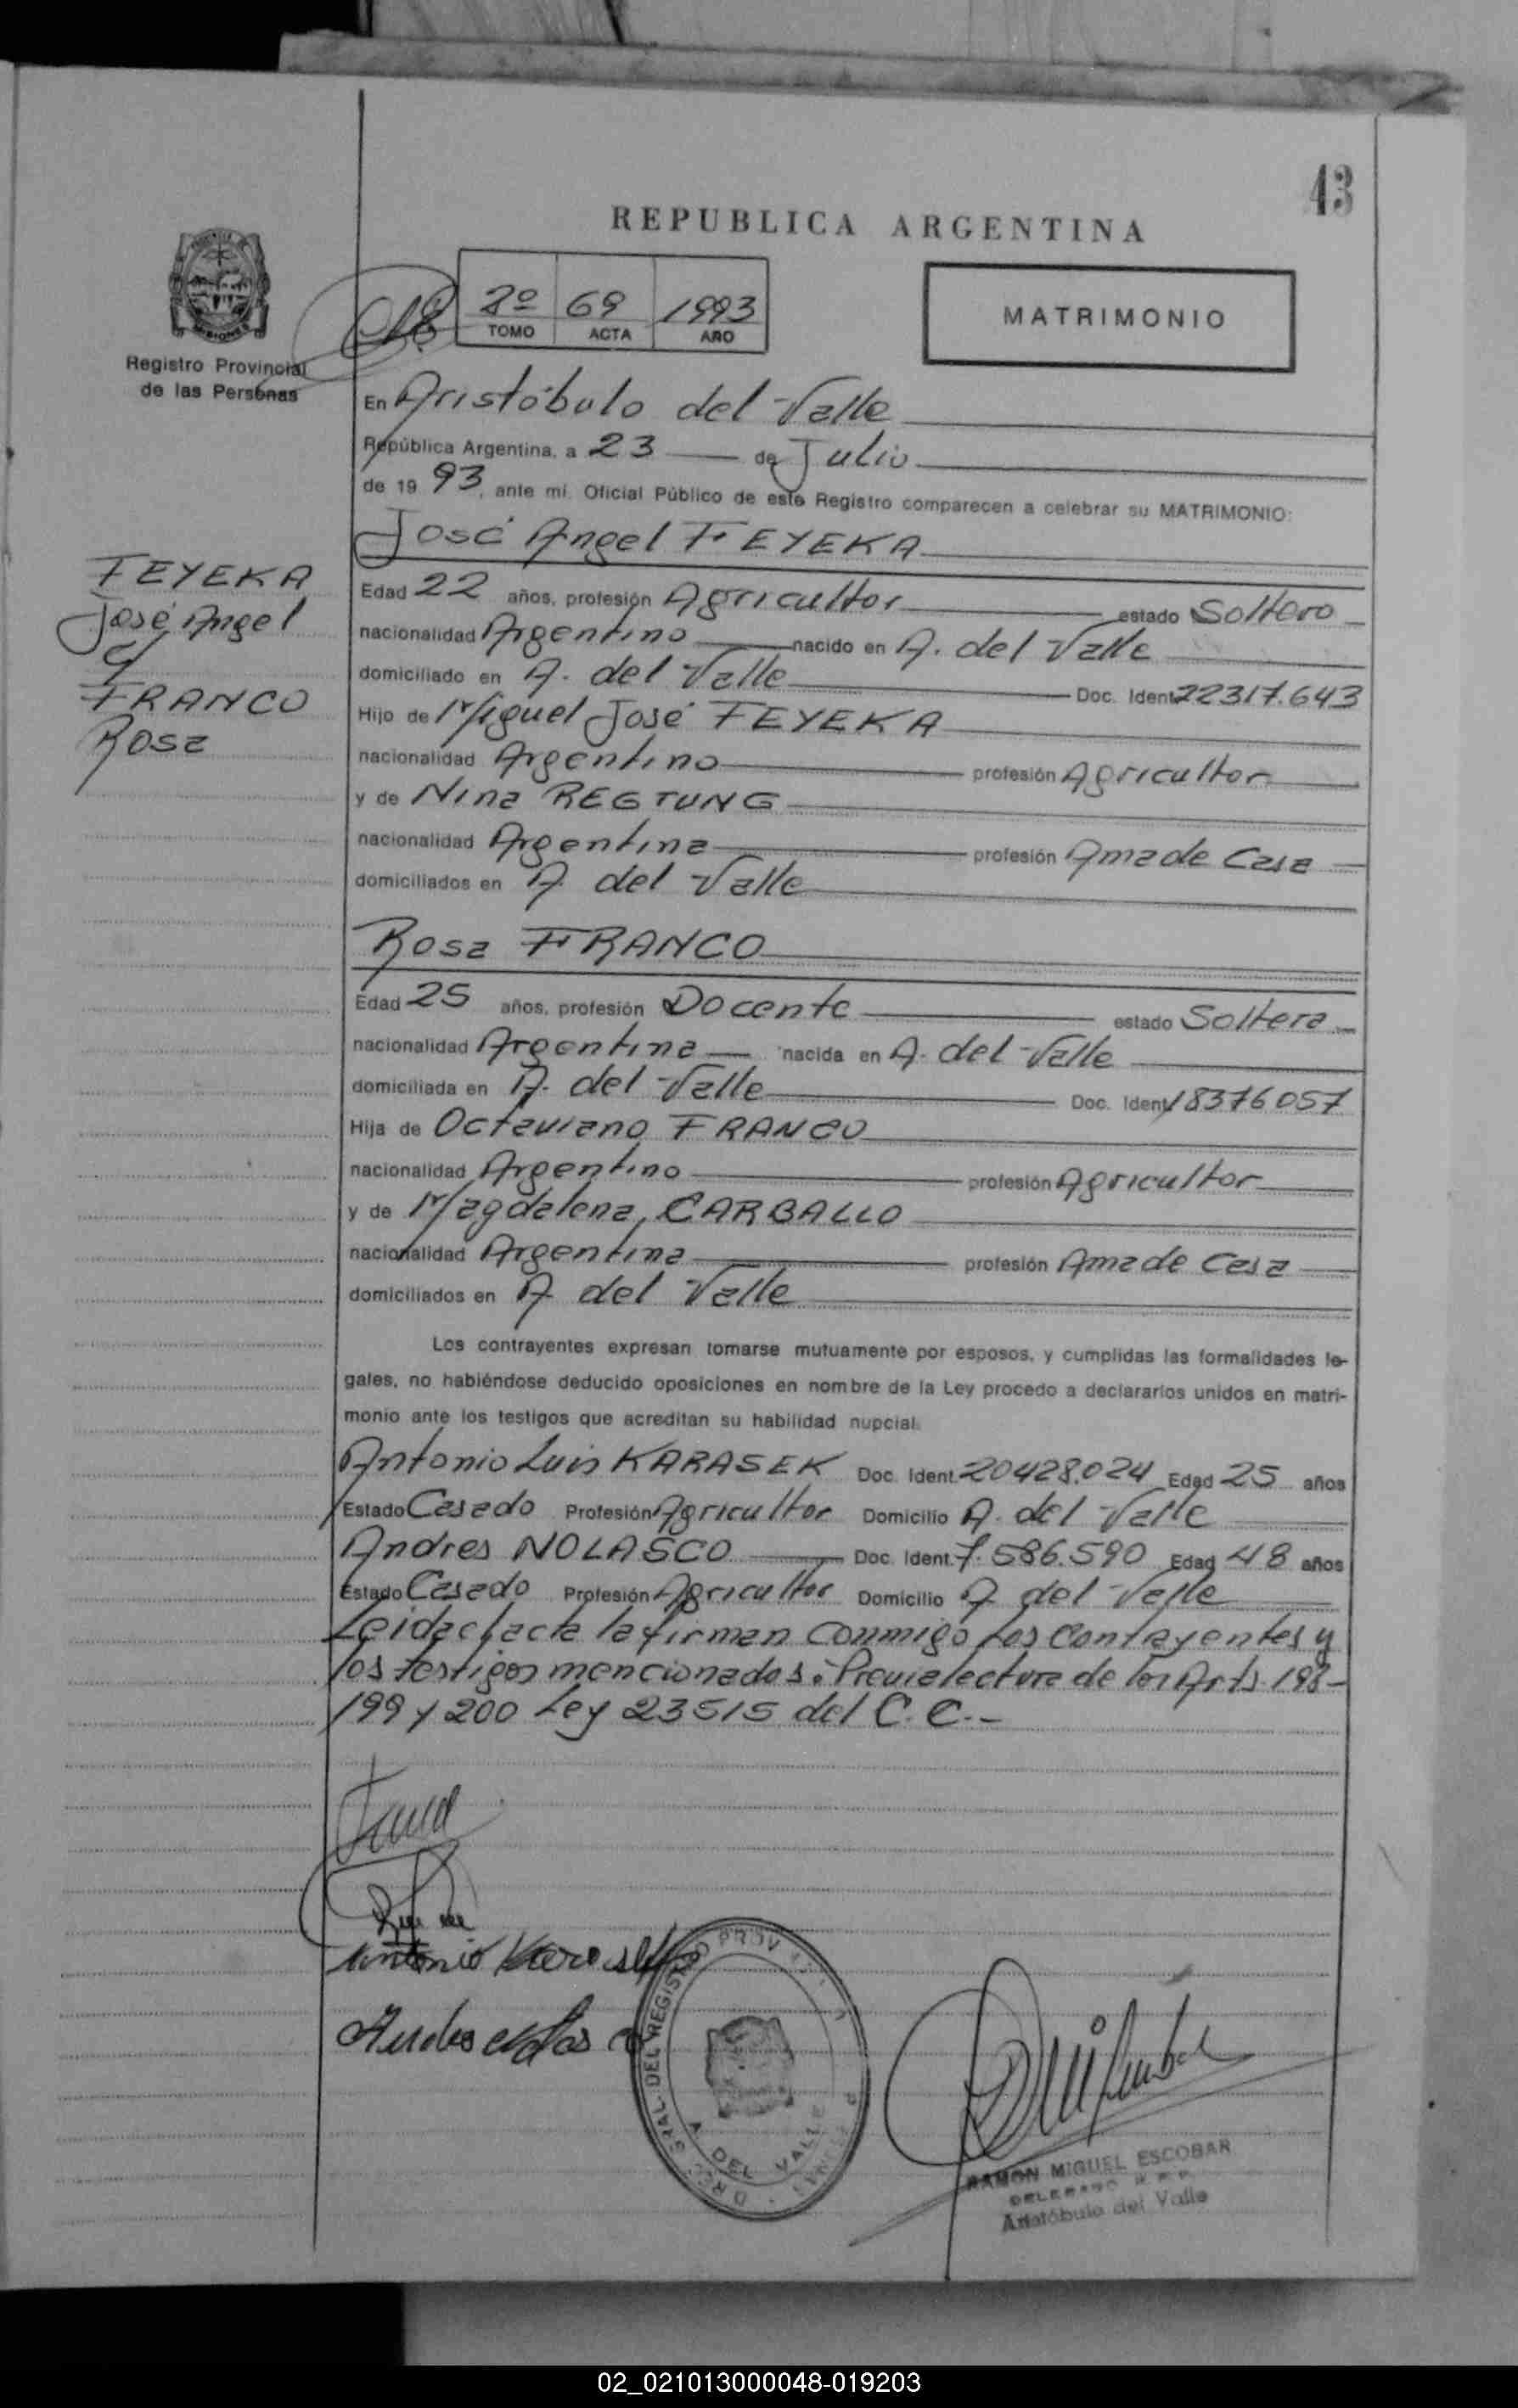 43
REPUBLICA ARGENTINA
MISIONES
Registro Provincial
de las Personas
2º 69 1993
TOMO ACTA AÑO
MATRIMONIO
En Aristóbulo del Valle
República Argentina, a 23 de Julio
de 19 93, ante mí, Oficial Público de este Registro comparecen a celebrar su MATRIMONIO:
José Angel FEYEKA
FEYEKA
José Angel
c/
FRANCO
Rosa
Edad 22 años, profesión Agricultor estado Soltero
nacionalidad Argentino nacido en A. del Valle
domiciliado en A. del Valle Doc. Ident. 22317.643
Hijo de Miguel José FEYEKA
nacionalidad Argentino profesión Agricultor
y de Nina REGTUNG
nacionalidad Argentina profesión Ama de Casa
domiciliados en A del Valle
Rosa FRANCO
Edad 25 años, profesión Docente estado Soltera
nacionalidad Argentina nacida en A. del Valle
domiciliada en A. del Valle Doc. Ident. 18376057
Hija de Octaviano FRANCO
nacionalidad Argentino profesión Agricultor
y de Magdalena, CARBALLO
nacionalidad Argentina profesión Ama de Casa
domiciliados en A del Valle
Los contrayentes expresan tomarse mutuamente por esposos, y cumplidas las formalidades le-
gales, no habiéndose deducido oposiciones en nombre de la Ley procedo a declararlos unidos en matri-
monio ante los testigos que acreditan su habilidad nupcial.
Antonio Luis KARASEK Doc. Ident. 20428.024 Edad 25 años
Estado Casado Profesión Agricultor Domicilio A. del Valle
Andres NOLASCO Doc. Ident. 7.586.590 Edad 48 años
Estado Casado Profesión Agricultor Domicilio A del Valle
Leida el acta la firman conmigo los contrayentes y
los testigos mencionados. Previa lectura de los Arts. 198-
199 y 200 Ley 23515 del C.C.-
Antonio Karasek
Andres Nolasco
A DEL VALLE
RAMON MIGUEL ESCOBAR
DELEGADO R.P.P.
Aristóbulo del Valle
02_021013000048-019203